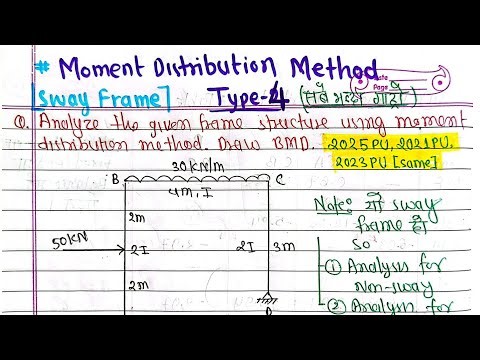 # Moment Distribution Method
Date
Page
[Sway Frame] Type-4 (सबै भन्दा गाह्रो)
Q. Analyze the given frame structure using moment
distribution method. Draw BMD. 2025PU, 2021PU,
2023PU [Same]
30KN/m
B C
4m, I
2m
50KN
2I 2I 3m
2m
D
Note: यो sway
frame हो
so
① Analysis for
Non-sway
② Analysis for